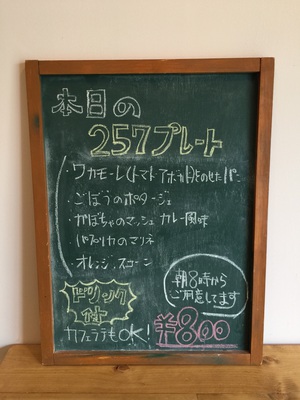 本日の
257プレート
・ワカモーレ(トマトアボカド)のせたパン
・ごぼうのポタージュ
・かぼちゃのマッシュ カレー風味
・パプリカのマリネ
・オレンジスコーン
ドリンク付
カフェラテもOK!
朝8時から
ご用意してます
¥800